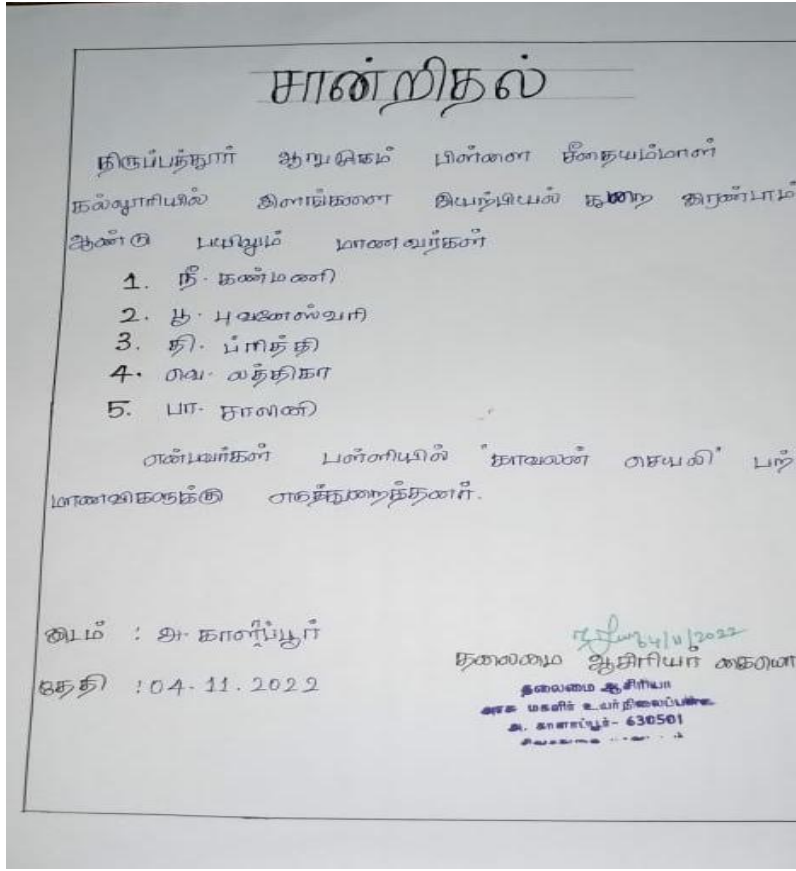 சான்றிதல்
திருப்பத்தூர் ஆறுமுகம் பிள்ளை சீதையம்மாள்
கல்லூரியில் இளங்கலை இயற்பியல் துறை இரண்டாம்
ஆண்டு பயிலும் மாணவர்கள்
1. நீ. கண்மணி
2. பூ. புவனேஸ்வரி
3. தி. ப்ரித்தி
4. வெ. லத்திகா
5. பா. சாலினி
என்பவர்கள் பள்ளியில் 'காவலன் செயலி' பற்
மாணவிகளுக்கு எடுத்துறைத்தனர்.
இடம் : அ. காளாப்பூர்
தலைமை ஆசிரியர் கையொ
தேதி : 04.11.2022
04/11/2022
தலைமை ஆசிரியா
அரசு மகளிர் உயர்நிலைப்பள்ளி
அ. காளாப்பூர் - 630501